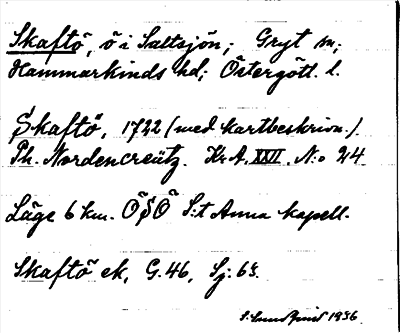 Skaftö, ö i Saltsjön; Gryt sn;
Hammarkinds hd; Östergötl. l.
Skaftö, 1722 (med kartbeskrivn.).
Ph. Nordencreütz. Kr.A. XXVI. N:o 24
Läge 6 km. ÖSÖ S:t Anna kapell.
Skaftö ek, G.46, Sj. 63.
1936